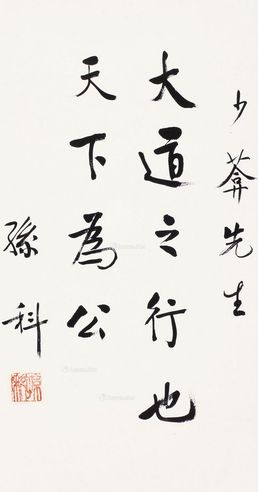 少莽先生
大道之行也
天下為公
孫科